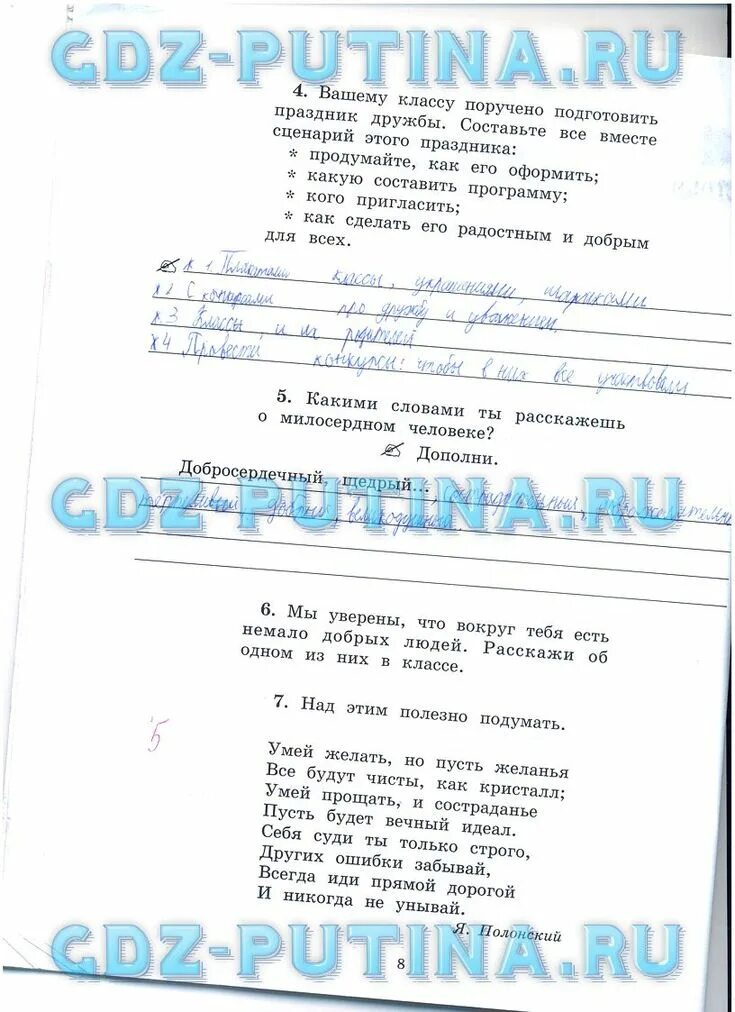 GDZ-PUTINA.RU
4. Вашему классу поручено подготовить
праздник дружбы. Составьте все вместе
сценарий этого праздника:
* продумайте, как его оформить;
* какую составить программу;
* кого пригласить;
* как сделать его радостным и добрым
для всех.
* 1. Плакатами классы, украшениями, шариками
* 2 С конкурсами про дружбу и уважением,
* 3 Классы, и их родителей
* 4 Провести конкурсы: чтобы в них все участвовали
5. Какими словами ты расскажешь
о милосердном человеке?
Дополни.
Добросердечный, щедрый...,
GDZ-PUTINA.RU
добрый, великодушный.
6. Мы уверены, что вокруг тебя есть
немало добрых людей. Расскажи об
одном из них в классе.
7. Над этим полезно подумать.
5
Умей желать, но пусть желанья
Все будут чисты, как кристалл;
Умей прощать, и состраданье
Пусть будет вечный идеал.
Себя суди ты только строго,
Других ошибки забывай,
Всегда иди прямой дорогой
И никогда не унывай.
Я. Полонский
GDZ-PUTINA.RU
8